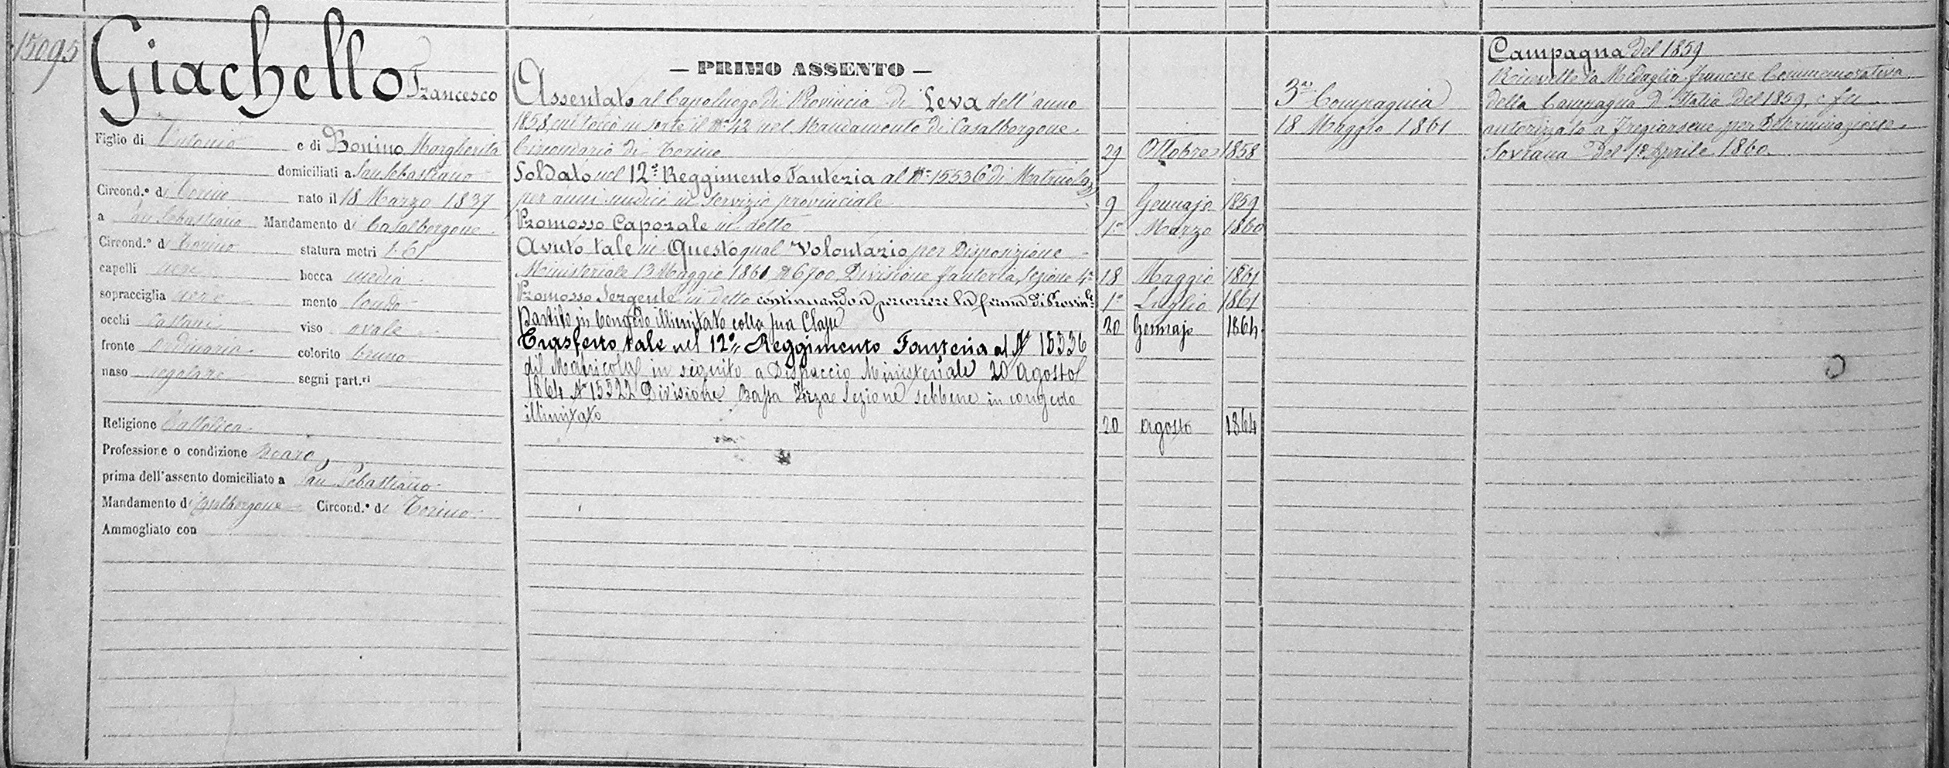 15095
Giachello Francesco
Figlio di Antonio e di Bonino Margherita
domiciliati a San Sebastiano
Circond.º di Torino nato il 18 Marzo 1837
a San Sebastiano Mandamento di Casalborgone
Circond.º di Torino statura metri 1.61
capelli neri bocca media
sopracciglia nere mento tondo
occhi castani viso ovale
fronte ordinaria colorito bruno
naso regolare segni part.ri
Religione Cattolica
Professione o condizione
prima dell'assento domiciliato a San Sebastiano
Mandamento di Casalborgone Circond.º di Torino
Ammogliato con
— PRIMO ASSENTO —
Assentato al Capoluogo di Provincia di Leva dell'anno
1858 ed ebbe in sorte il Nº 42 nel Mandamento di Casalborgone
Circondario di Torino 29 Ottobre 1858
Soldato nel 12º Reggimento Fanteria al Nº 15536 di Matricola
per anni undici in servizio provinciale 9 Gennajo 1859
Promosso Caporale in detto 1º Marzo 1860
Avuto tale in Questo qual Volontario per Disposizione
Ministeriale 13 Maggio 1861 Nº 6700, Divisione fanteria, Sezione 4ª 18 Maggio 1861
Promosso Sergente in detto continuando a percorrere la ferma di Provin.le 1º Luglio 1861
Partito in Congedo illimitato colla sua Classe 20 Gennajo 1864
Trasferto tale nel 12º Reggimento Fanteria al Nº 15536
di Matricola in seguito a Dispaccio Ministeriale 20 Agosto
1864 Nº 15322 Divisione Bassa Forza Sezione sebbene in congedo
illimitato 20 Agosto 1864
3ª Compagnia
18 Maggio 1861
Campagna del 1859
Ricevette la Medaglia francese Commemorativa
della Campagna d'Italia del 1859, e fu
autorizzato a fregiarsene per Determinazione
Sovrana del 1º Aprile 1860